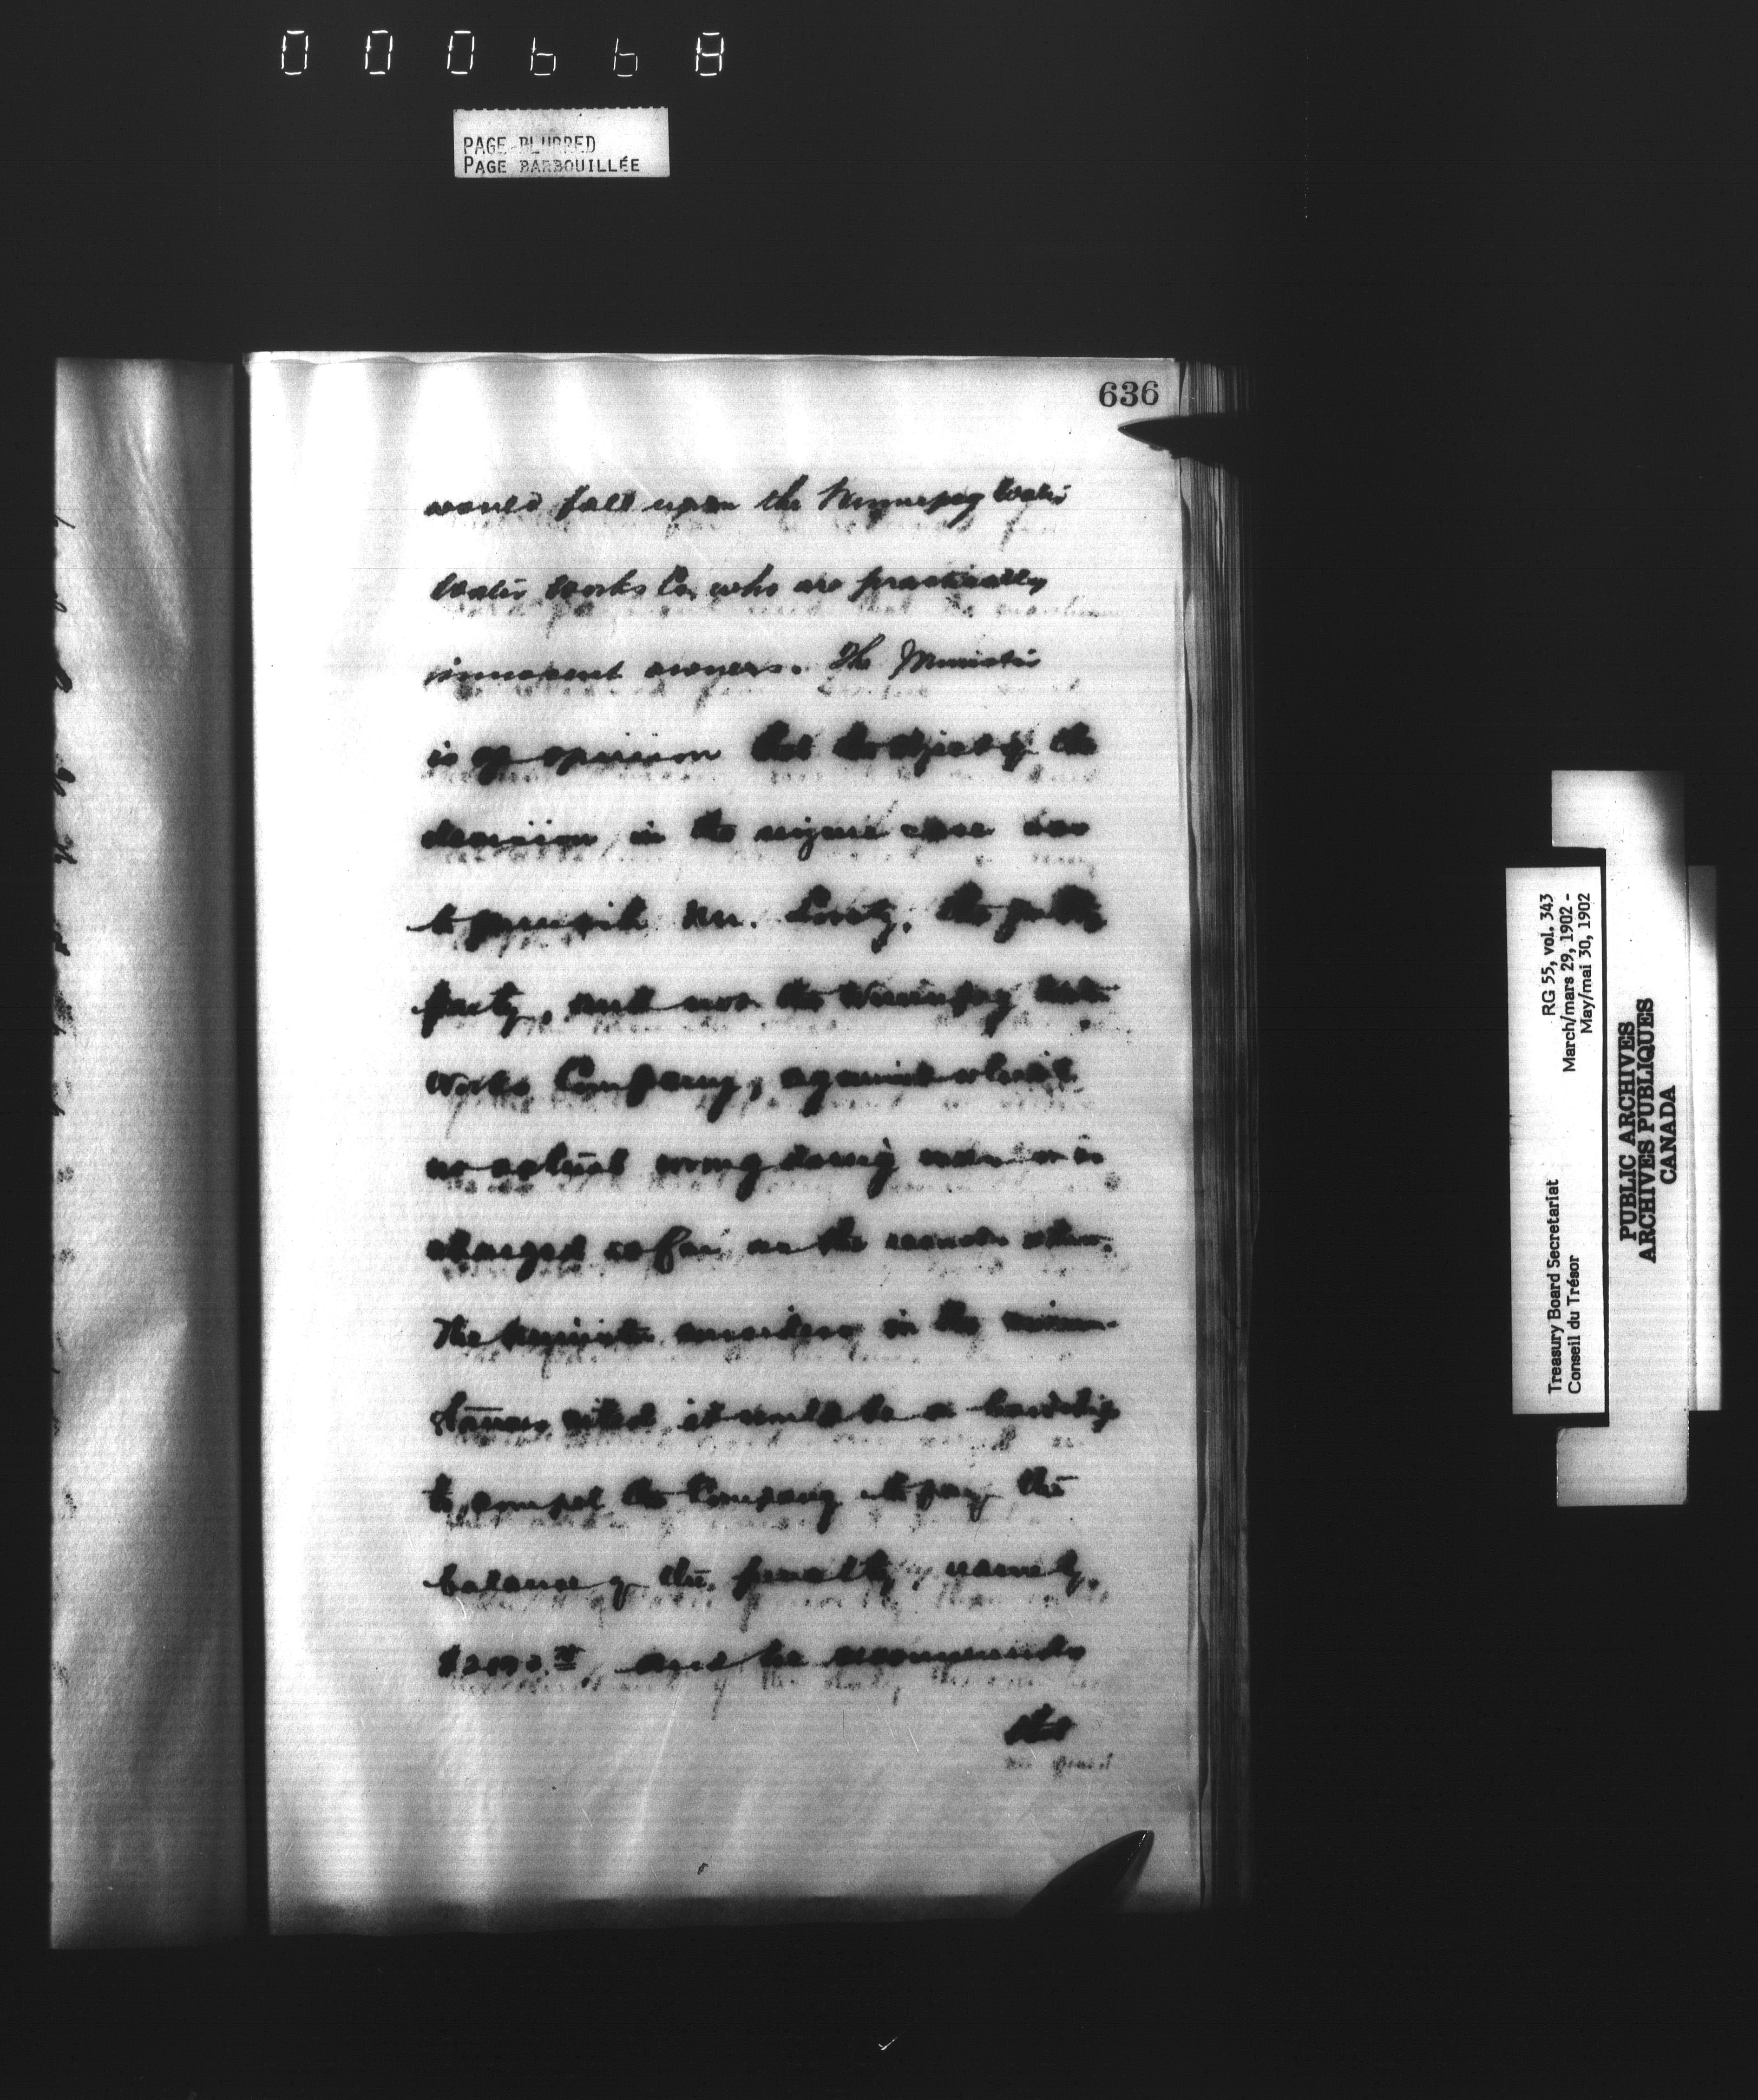 000668
PAGE BLURRED
PAGE BARBOUILLÉE
636
would fall upon the Winnipeg Water
Water Works Co, who are practically
innocent owners. The Minister
is of opinion that the object of the
decision in the seizure case was
to punish Mr. the guilty
party, and not the Winnipeg Water
Works Company, against which
no actual wrong doing was or is
charged so far as the records show.
The Minister considers in the circum-
stances cited it would be a hardship
to compel the Company to pay the
balance of the penalty, namely,
and he recommends
that
RG 55, vol. 343
March/mars 29, 1902 -
May/mai 30, 1902
Treasury Board Secretariat
Conseil du Trésor
PUBLIC ARCHIVES
ARCHIVES PUBLIQUES
CANADA